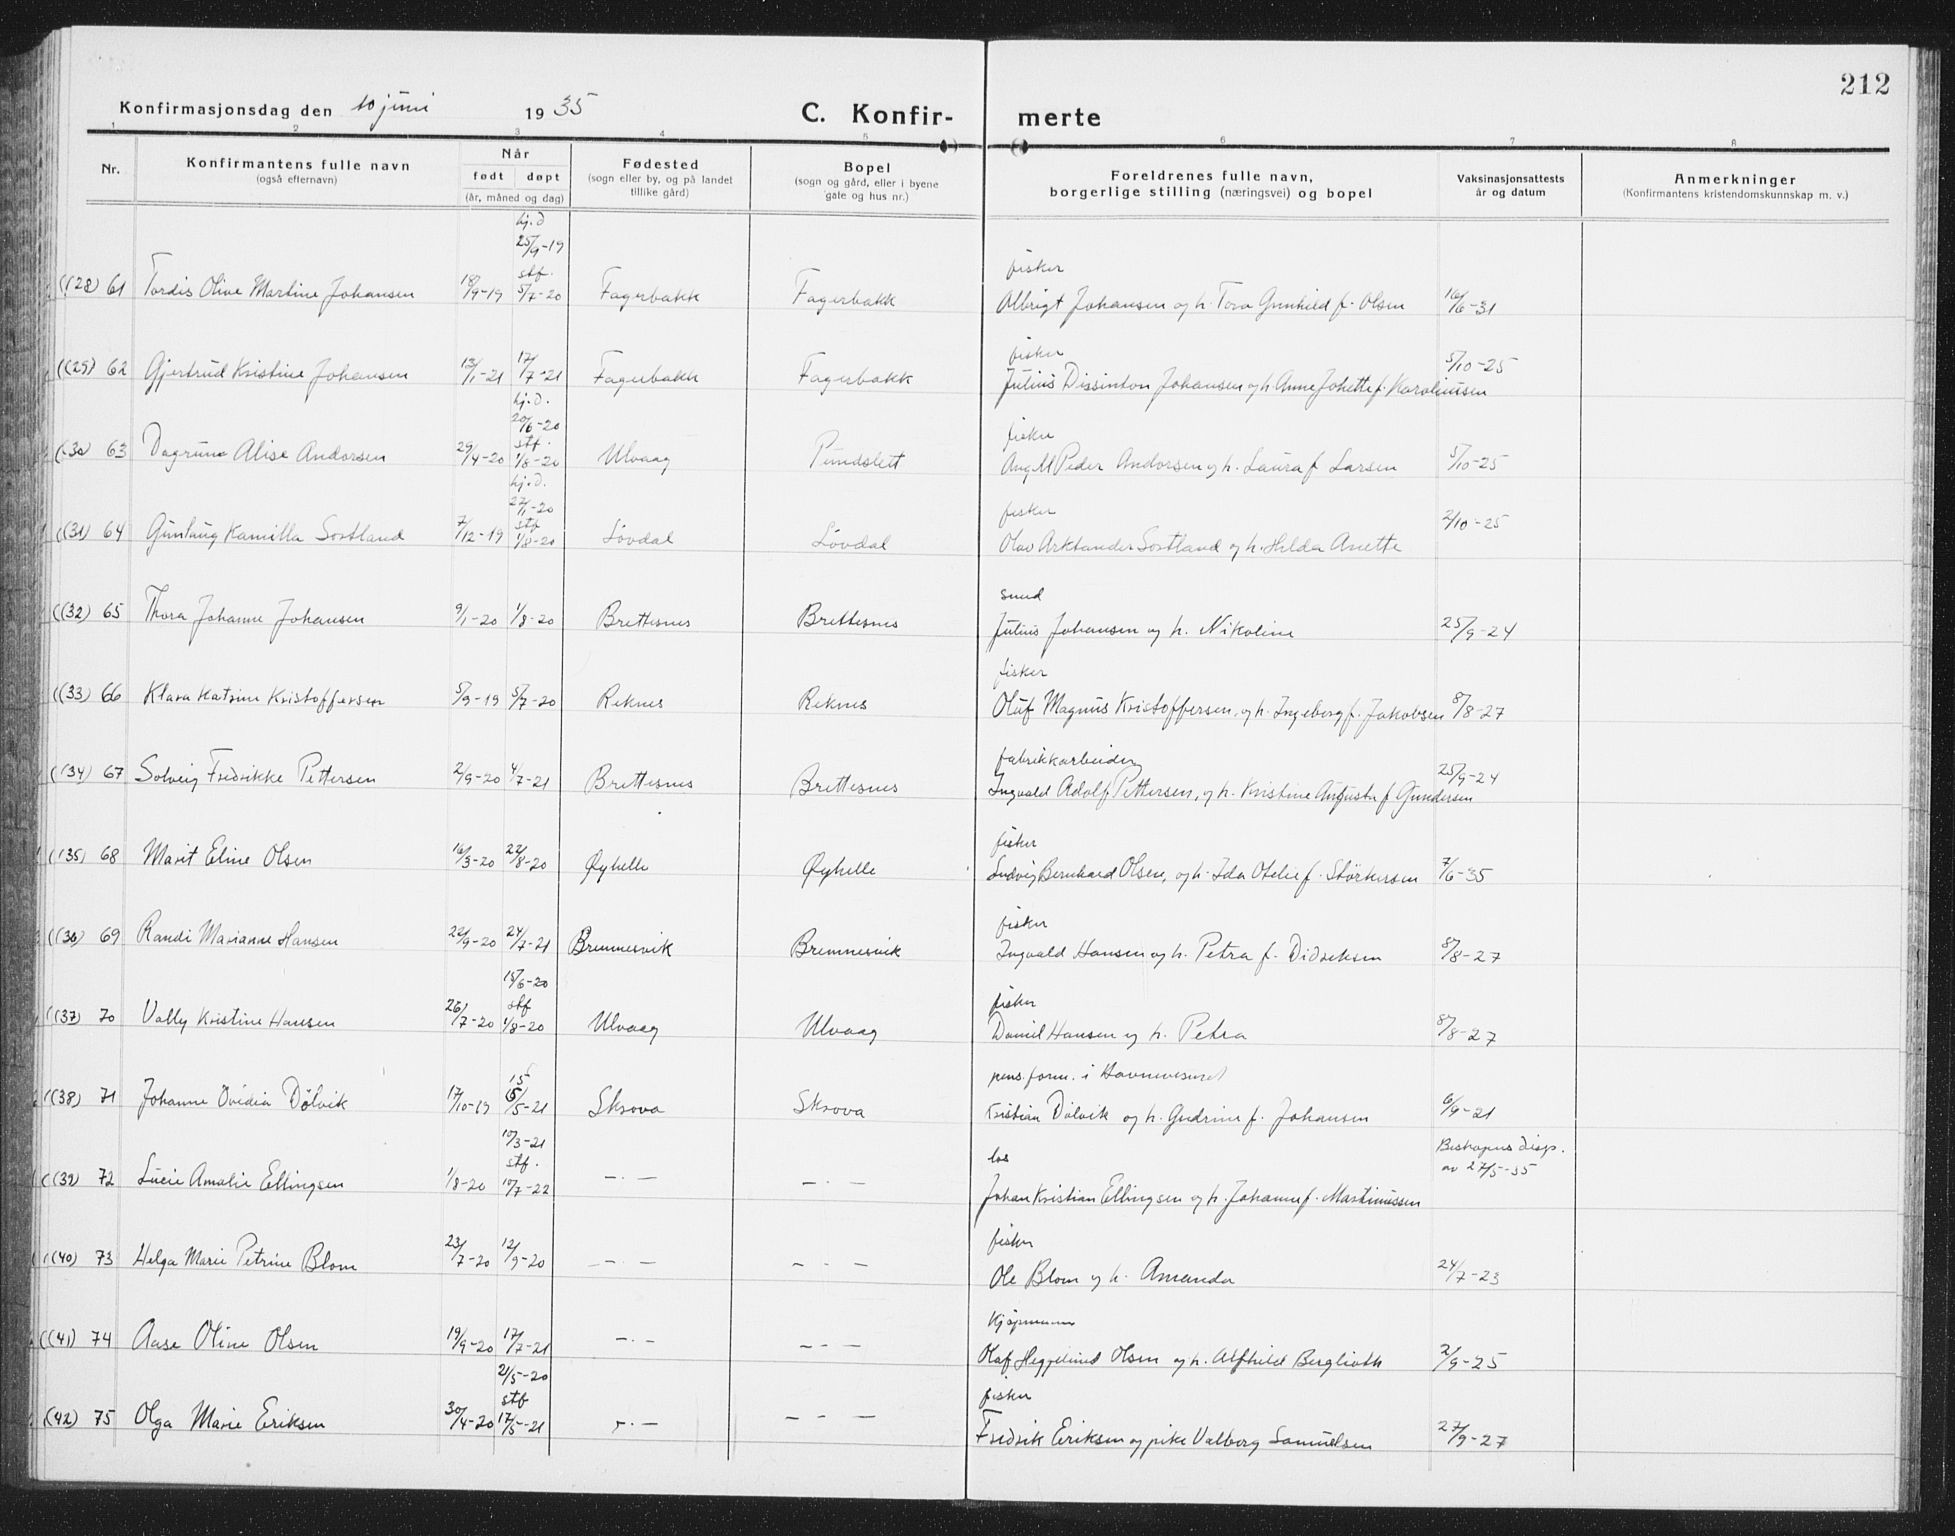 212
Konfirmasjonsdag den 10 juni 1935 C. Konfir- merte
1 2 3 4 5 6 7 8
Nr. Konfirmantens fulle navn Når Fødested Bopel Foreldrenes fulle navn, Vaksinasjonsattests Anmerkninger
(også efternavn) født døpt (sogn eller by, og på landet (sogn og gård, eller i byene borgerlige stilling (næringsvei) og bopel år og datum (Konfirmantens kristendomskunnskap m. v.)
(år, måned og dag) tillike gård) gate og hus nr.)
hj.d
25/9-19
stf. fisker
(28) 61 Tordis Olive Martine Johansen 18/9-19 5/7-20 Fagerbakk Fagerbakk Albrigt Johansen og h. Tora Gunhild f. Olsen 16/6-31
fisker
(29) 62 Gjertrud Kristine Johansen 13/1-21 17/7-21 Fagerbakk Fagerbakk Julius Dissinton Johansen og h. Anne Johette f. Karoliussen 5/10-25
hj.d.
20/6-20
stf. fisker
(30) 63 Dagrunn Alise Andorsen 29/4-20 1/8-20 Ulvaag Pundslett Peder Andorsen og h. Laura f Larsen 5/10-25
hj.d.
27/1-20
stf fisker
(31) 64 Gunlaug Kamilla Sortland 7/12-19 1/8-20 Lövdal Lövdal Olav Arktander Sortland og h. Hilda Anette 2/10-25
smed
(32) 65 Thora Johanne Johansen 9/1-20 1/8-20 Brettesnes Brettesnes Julius Johansen og h. Nikoline 25/9-24
fisker
(33) 66 Klara Katrine Kristoffersen 5/9-19 5/7-20 Reknes Reknes Oluf Magnus Kristoffersen, og h. Ingeborg f. Jakobsen 8/8-27
fabrikkarbeider
(34) 67 Solveig Fredrikke Pettersen 2/9-20 4/7-21 Brettesnes Brettesnes Ingvald Adolf Pettersen, og h. Kristine Augusta f Gundersen 25/9-24
fisker
(35) 68 Marit Eline Olsen 16/3-20 22/8-20 Øyhelle Øyhelle Ludvig Bernhard Olsen, og h. Ida Otelie f. Störkersen 7/6-35
fisker
(36) 69 Randi Marianne Hansen 22/9-20 24/7-21 Bremnesvik Bremnesvik Ingvald Hansen og h. Petra f. Didriksen 8/8-27
15/6-20
stf fisker
(37) 70 Vally Kristine Hansen 26/7-20 1/8-20 Ulvaag Ulvaag Daniel Hansen og h. Petra 8/8-27
15 pens. form. i Havnevesenet
(38) 71 Johanne Ovidia Dölvik 17/10-19 /5-21 Skrova Skrova Kristian Dölvik og h. Gudrine f. Johansen 6/9-21
10/3-21
stf. los Biskopens disp. av 27/5-35
(39) 72 Lucie Amalie Ellingsen 1/8-20 10/7-22 — · — — · — Johan Kristian Ellingsen og h. Johanne f. Martinussen
fisker
(40) 73 Helga Marie Petrine Blom 23/7-20 12/9-20 — · — — · — Ole Blom og h. Amanda 24/7-23
Kjöpmann
(41) 74 Aase Oline Olsen 19/9-20 17/7-21 — · — — · — Olaf Heggelund Olsen og h. Alfhild Berglioth 2/9-25
2/5-20
stf fisker
(42) 75 Olga Marie Eriksen 30/4-20 17/5-21 — · — — · — Fredrik Eriksen og pike Valborg Samuelsen 27/9-27